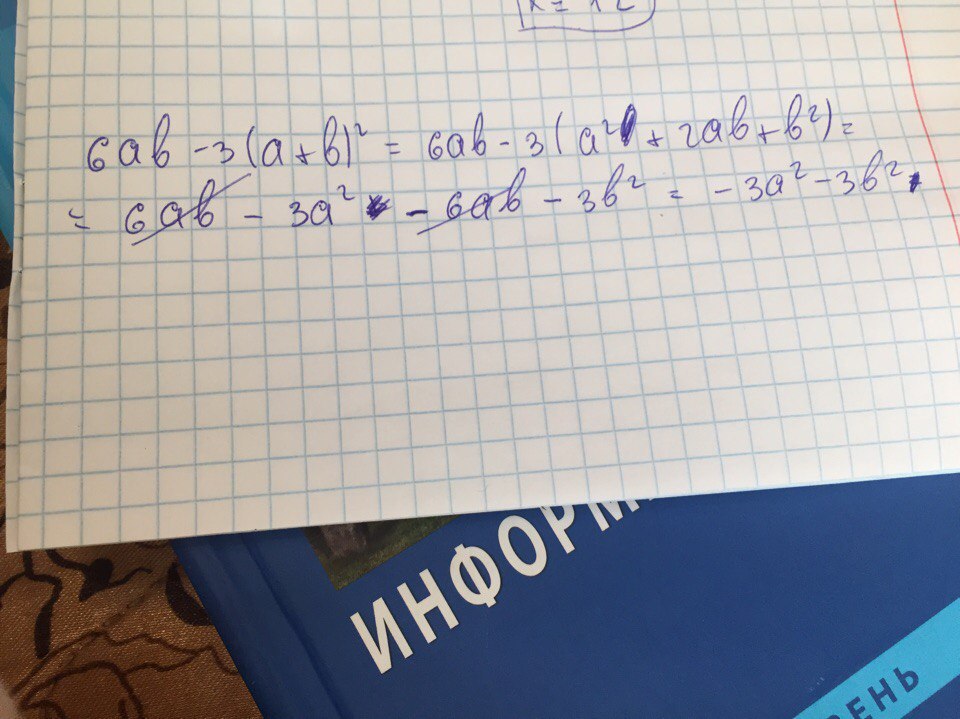 6ab - 3(a+b)² = 6ab - 3(a² + 2ab + b²) =
= 6ab - 3a² - 6ab - 3b² = -3a² - 3b².
ИНФОРМ
ВЕНЬ